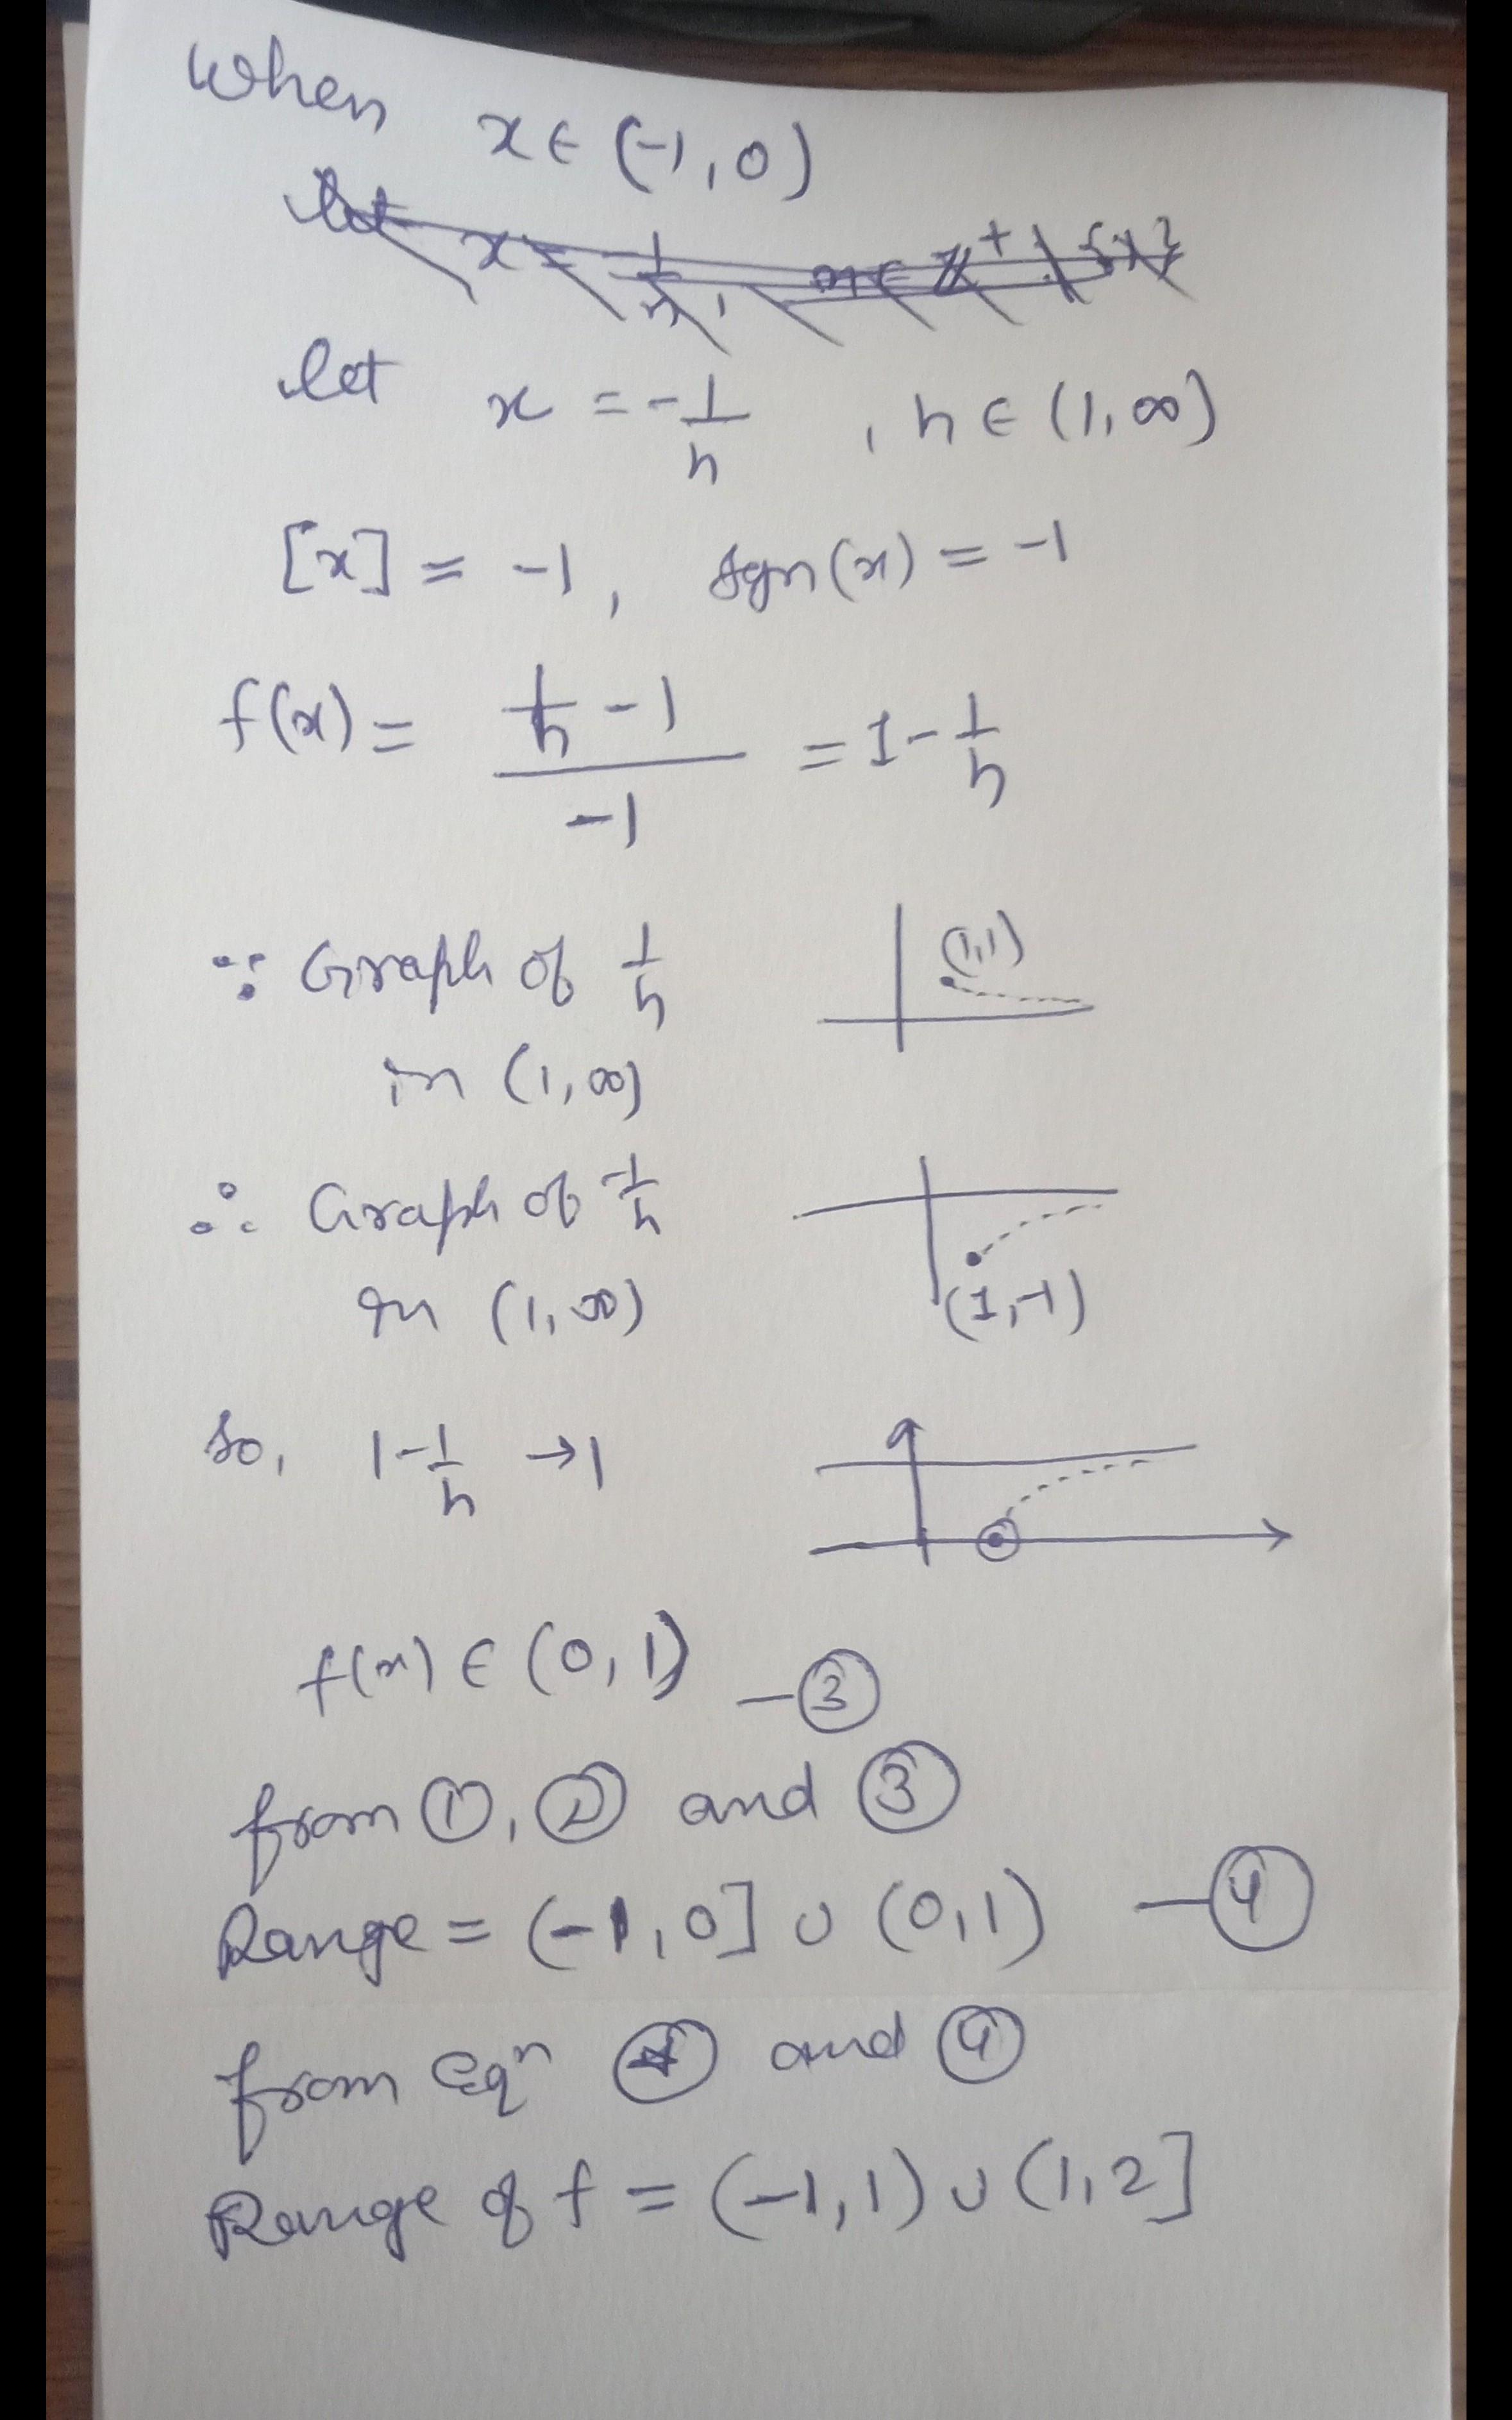 When x ∈ (-1, 0)
let x = 1/n,
let x = -1/n , n ∈ (1, ∞)
[x] = -1, sgn(x) = -1
f(x) = (1/n - 1)/-1 = 1 - 1/n
∵ Graph of 1/n
(1,1)
in (1, ∞)
∴ Graph of -1/n
in (1, ∞)
(1,-1)
so, 1 - 1/n → 1
f(x) ∈ (0, 1) - ③
from ①, ② and ③
Range = (-1, 0] ∪ (0, 1) - ④
from Eqⁿ and ④
Range of f = (-1, 1) ∪ (1, 2]